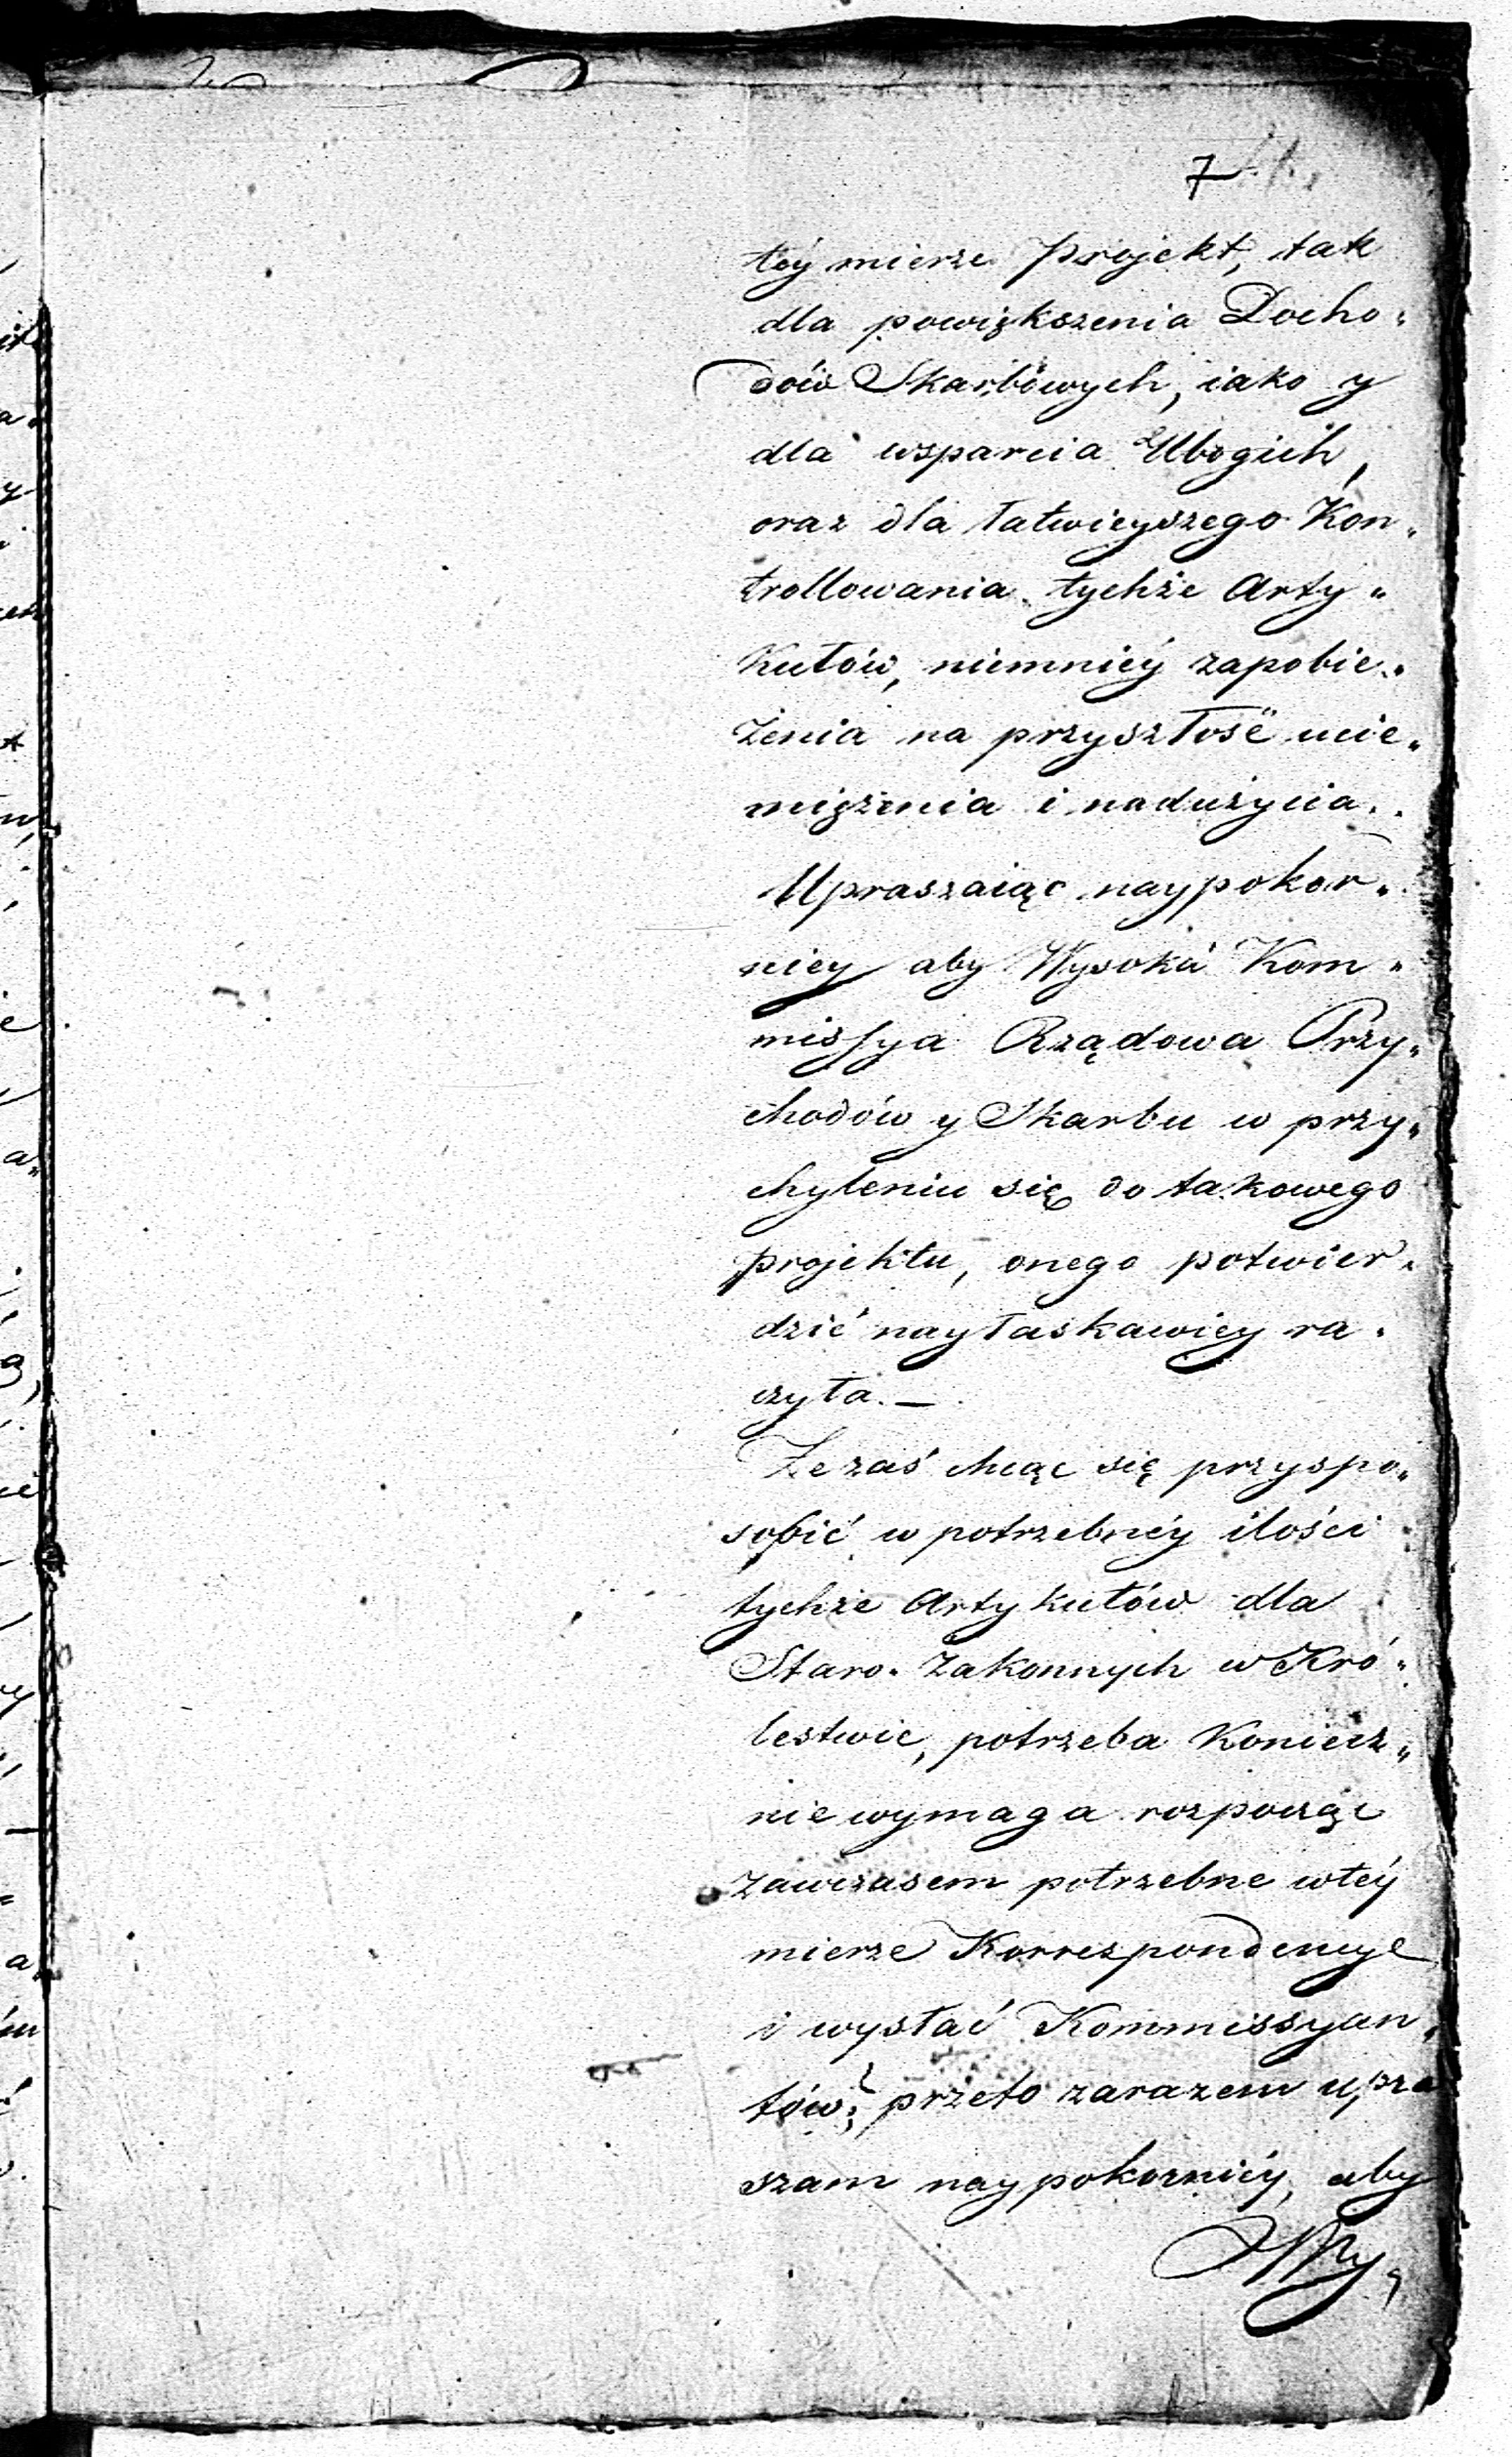 7
téy mierze Projekt, tak
dla powiększenia Docho„
dów Skarbowych, iako y
dla wsparcia Ubogich,
oraz dla łatwieyszego Kon„
trollowania tychże Arty„
kułów, niemniéy zapobie„
żenia na przyszłość ucie„
miężenia i nadużycia.
Upraszaiąc naypokor„
niey aby Wysoka Kom„
missya Rządowa Przy„
chodów y Skarbu w przy„
chyleniu się do takowego
projektu, onego potwier„
dzić nayłaskawiey ra„
czyła. —
Że zaś chcąc się przyspo„
sobić w potrzebnéy ilości
tychże Artykułów dla
Staro-Zakonnych w Kró„
lestwie, potrzeba koniecz„
nie wymaga rozpocząć
zawczasem potrzebne w téy
mierze Korrespondencye
i wysłać Kommissyan„
tów; przeto zarazem upra
szam naypokorniéy, aby
Wy„